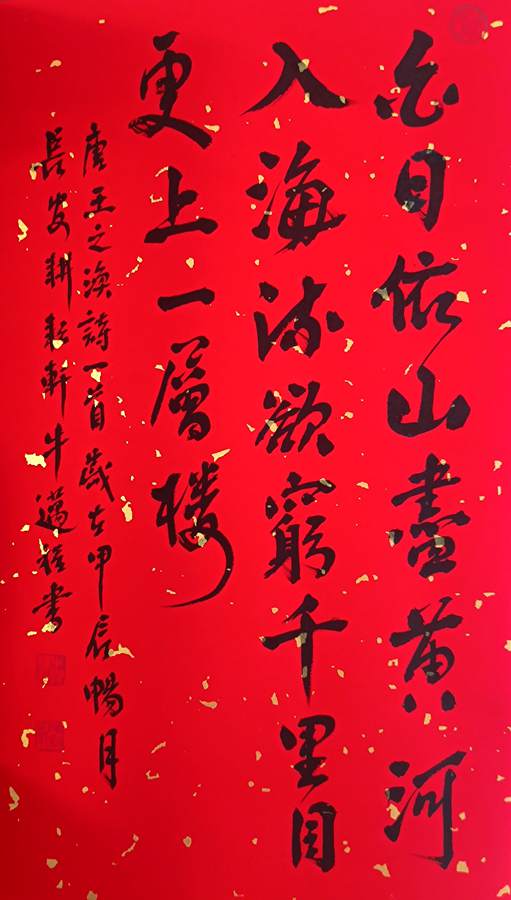 白日依山盡黃河
入海流欲窮千里目
更上一層樓
唐王之渙詩一首歲在甲辰暢月
長安耕耘軒牛邁程書